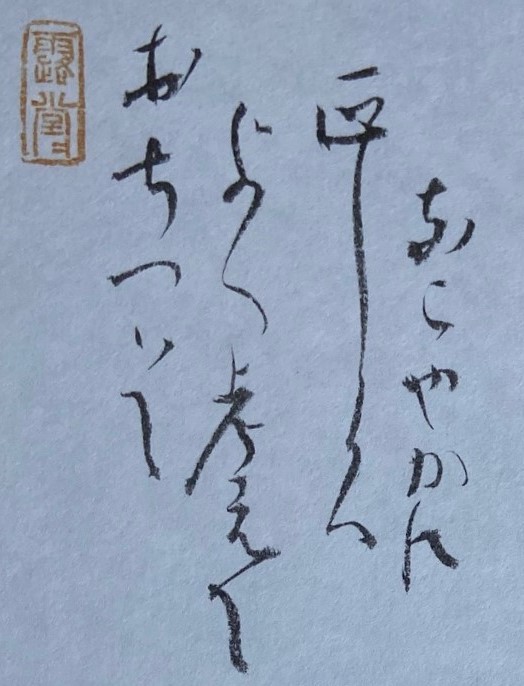 なごやかに
正しく
よく考えて
おちついて
露堂